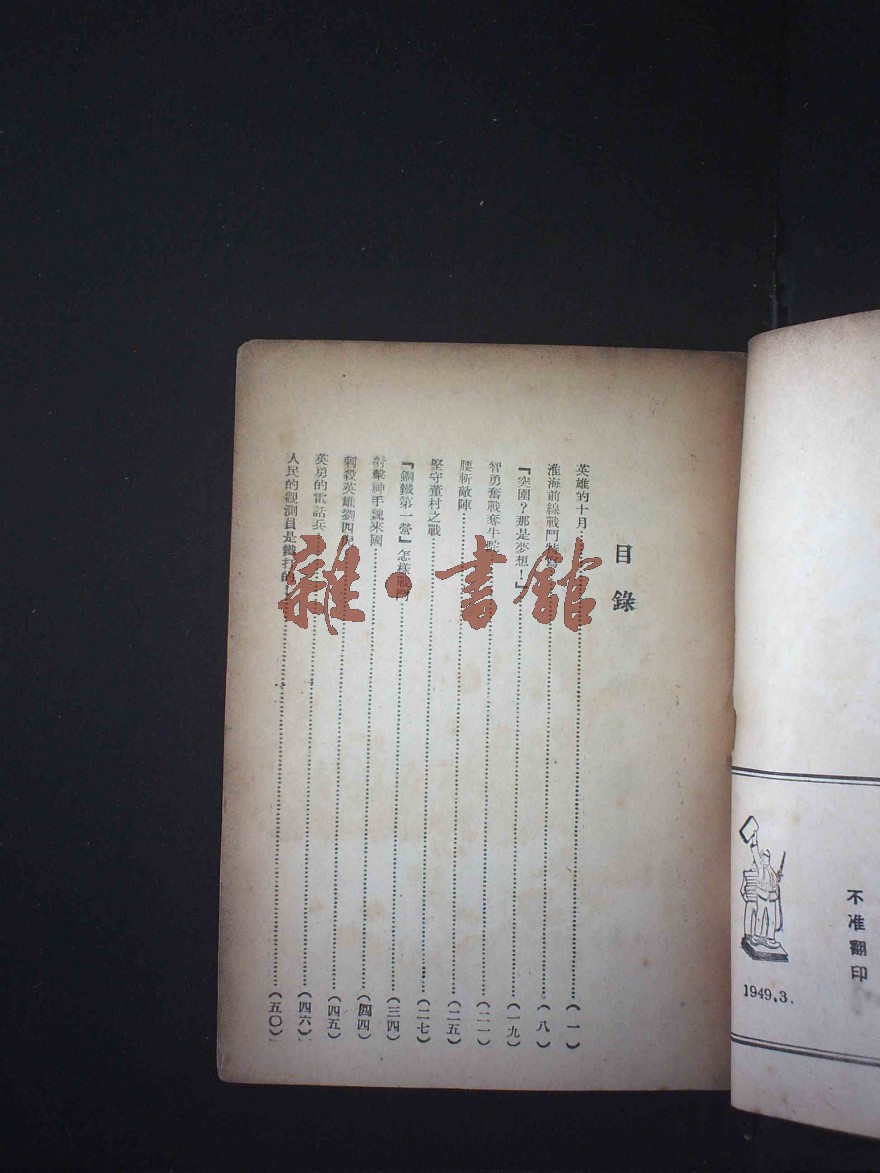 不准翻印
1949.3.
目錄
英雄的十月……（一）
淮海前線戰鬥……（八）
『突圍？那是夢想！』……（一九）
智勇奮戰奪牛……（二一）
腰斬敵陣……（二五）
堅守董村之戰……（二七）
『鋼鐵第一營』怎樣戰鬥……（三四）
射擊神手魏來國……（四四）
刺殺英雄劉四……（四五）
英勇的電話兵……（四六）
人民的觀測員是鐵打的……（五〇）
雜·書館